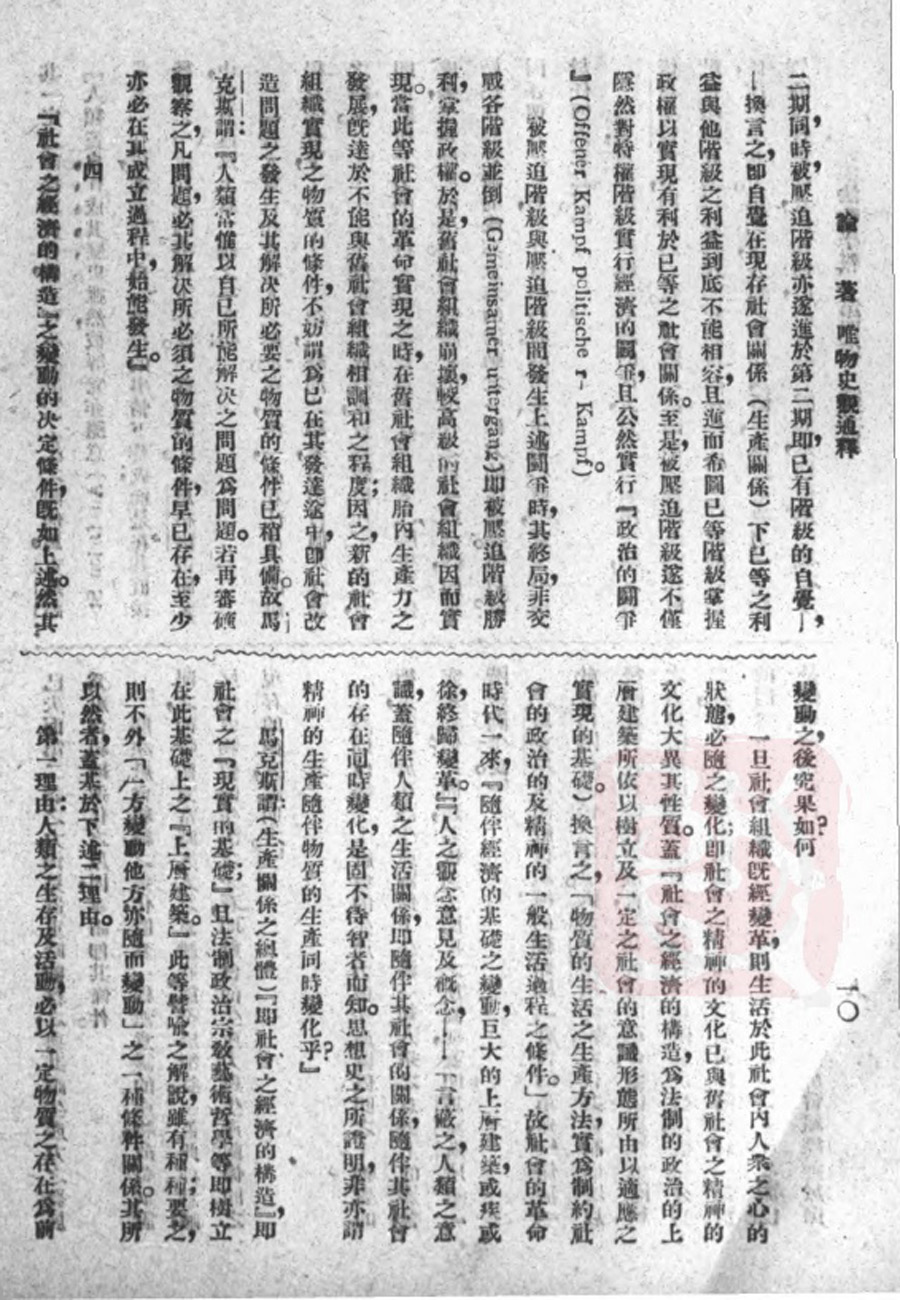 論著 唯物史觀通釋
一〇
二期同時，被壓迫階級亦遂進於第二期，即已有階級的自覺，—
—換言之，卽自覺在現存社會關係（生產關係）下已等之利
益與他階級之利益到底不能相容，且進而希圖已等階級掌握
政權以實現有利於已等之社會關係。至是，被壓迫階級遂不僅
隱然對特權階級實行經濟的鬪爭，且公然實行『政治的鬪爭
』(Offener Kampf politische r- Kampf)。
被壓迫階級與壓迫階級間發生上述鬪爭時，其終局，非交
戰各階級並倒 (Gemeinsamer untergang) 卽被壓迫階級勝
利，掌握政權。於是，舊社會組織崩壞，較高級的社會組織因而實
現。當此等社會的革命實現之時，在舊社會組織胎內生產力之
發展，旣達於不能與舊社會組織相調和之程度；因之，新的社會
組織實現之物質的條件，不妨謂爲已在其發達途中，卽社會改
造問題之發生及其解决所必要之物質的條件已稍具備。故馬
克斯謂：『人類常僅以自已所能解决之問題爲問題。若再審礭
觀察之，凡問題，必其解决所必須之物質的條件，早已存在，至少
亦必在其成立過程中，始能發生。』
四
『社會之經濟的構造』之變動的决定條件，旣如上述。然其
變動之後，究果如何？
一旦社會組織旣經變革，則生活於此社會內人衆之心的
狀態，必隨之變化；卽社會之精神的文化已與舊社會之精神的
文化大異其性質。蓋『社會之經濟的構造，爲法制的政治的上
層建築所依以樹立及一定之社會的意識形態所由以適應之
實現的基礎。』換言之，「物質的生活之生產方法，實爲制約社
會的政治的及精神的一般生活過程之條件。」故社會的革命
時代一來，『隨伴經濟的基礎之變動，巨大的上層建築，或疾或
徐，終歸變革。』『人之觀念意見及槪念，—— 一言蔽之，人類之意
識，蓋隨伴人類之生活關係，卽隨伴其社會的關係，隨伴其社會
的存在同時變化，是固不待智者而知。思想史之所證明，非亦謂
精神的生產隨伴物質的生產同時變化乎？』
馬克斯謂：（生產關係之總體）『卽社會之經濟的構造』，卽
社會之『現實的基礎』；且法制政治宗敎藝術哲學等卽樹立
在此基礎上之『上層建築。』此等譬喩之解說，雖有種種；要之，
則不外「一方變動他方亦隨而變動」之一種條件關係。其所
以然者，蓋基於下述二理由。
第一理由：人類之生存及活動，必以一定物質之存在爲前